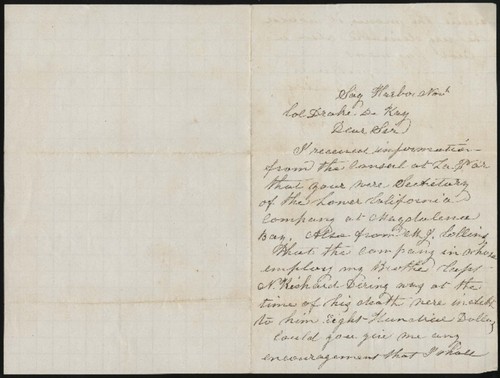 Sag Harbor Nov
Col Drake De Kay
Dear Ser
I received information
from the Consul at La
that your were Secretary
of the Lower California
Company at Magdalena
Bay, Also from M. J. Collins
That the company in whose
employ my Brother Capt
N. Richard Dering was at the
time of his death were indebt
to him Eight-Hundred Dollars
Could you give me any
encouragement that I shall